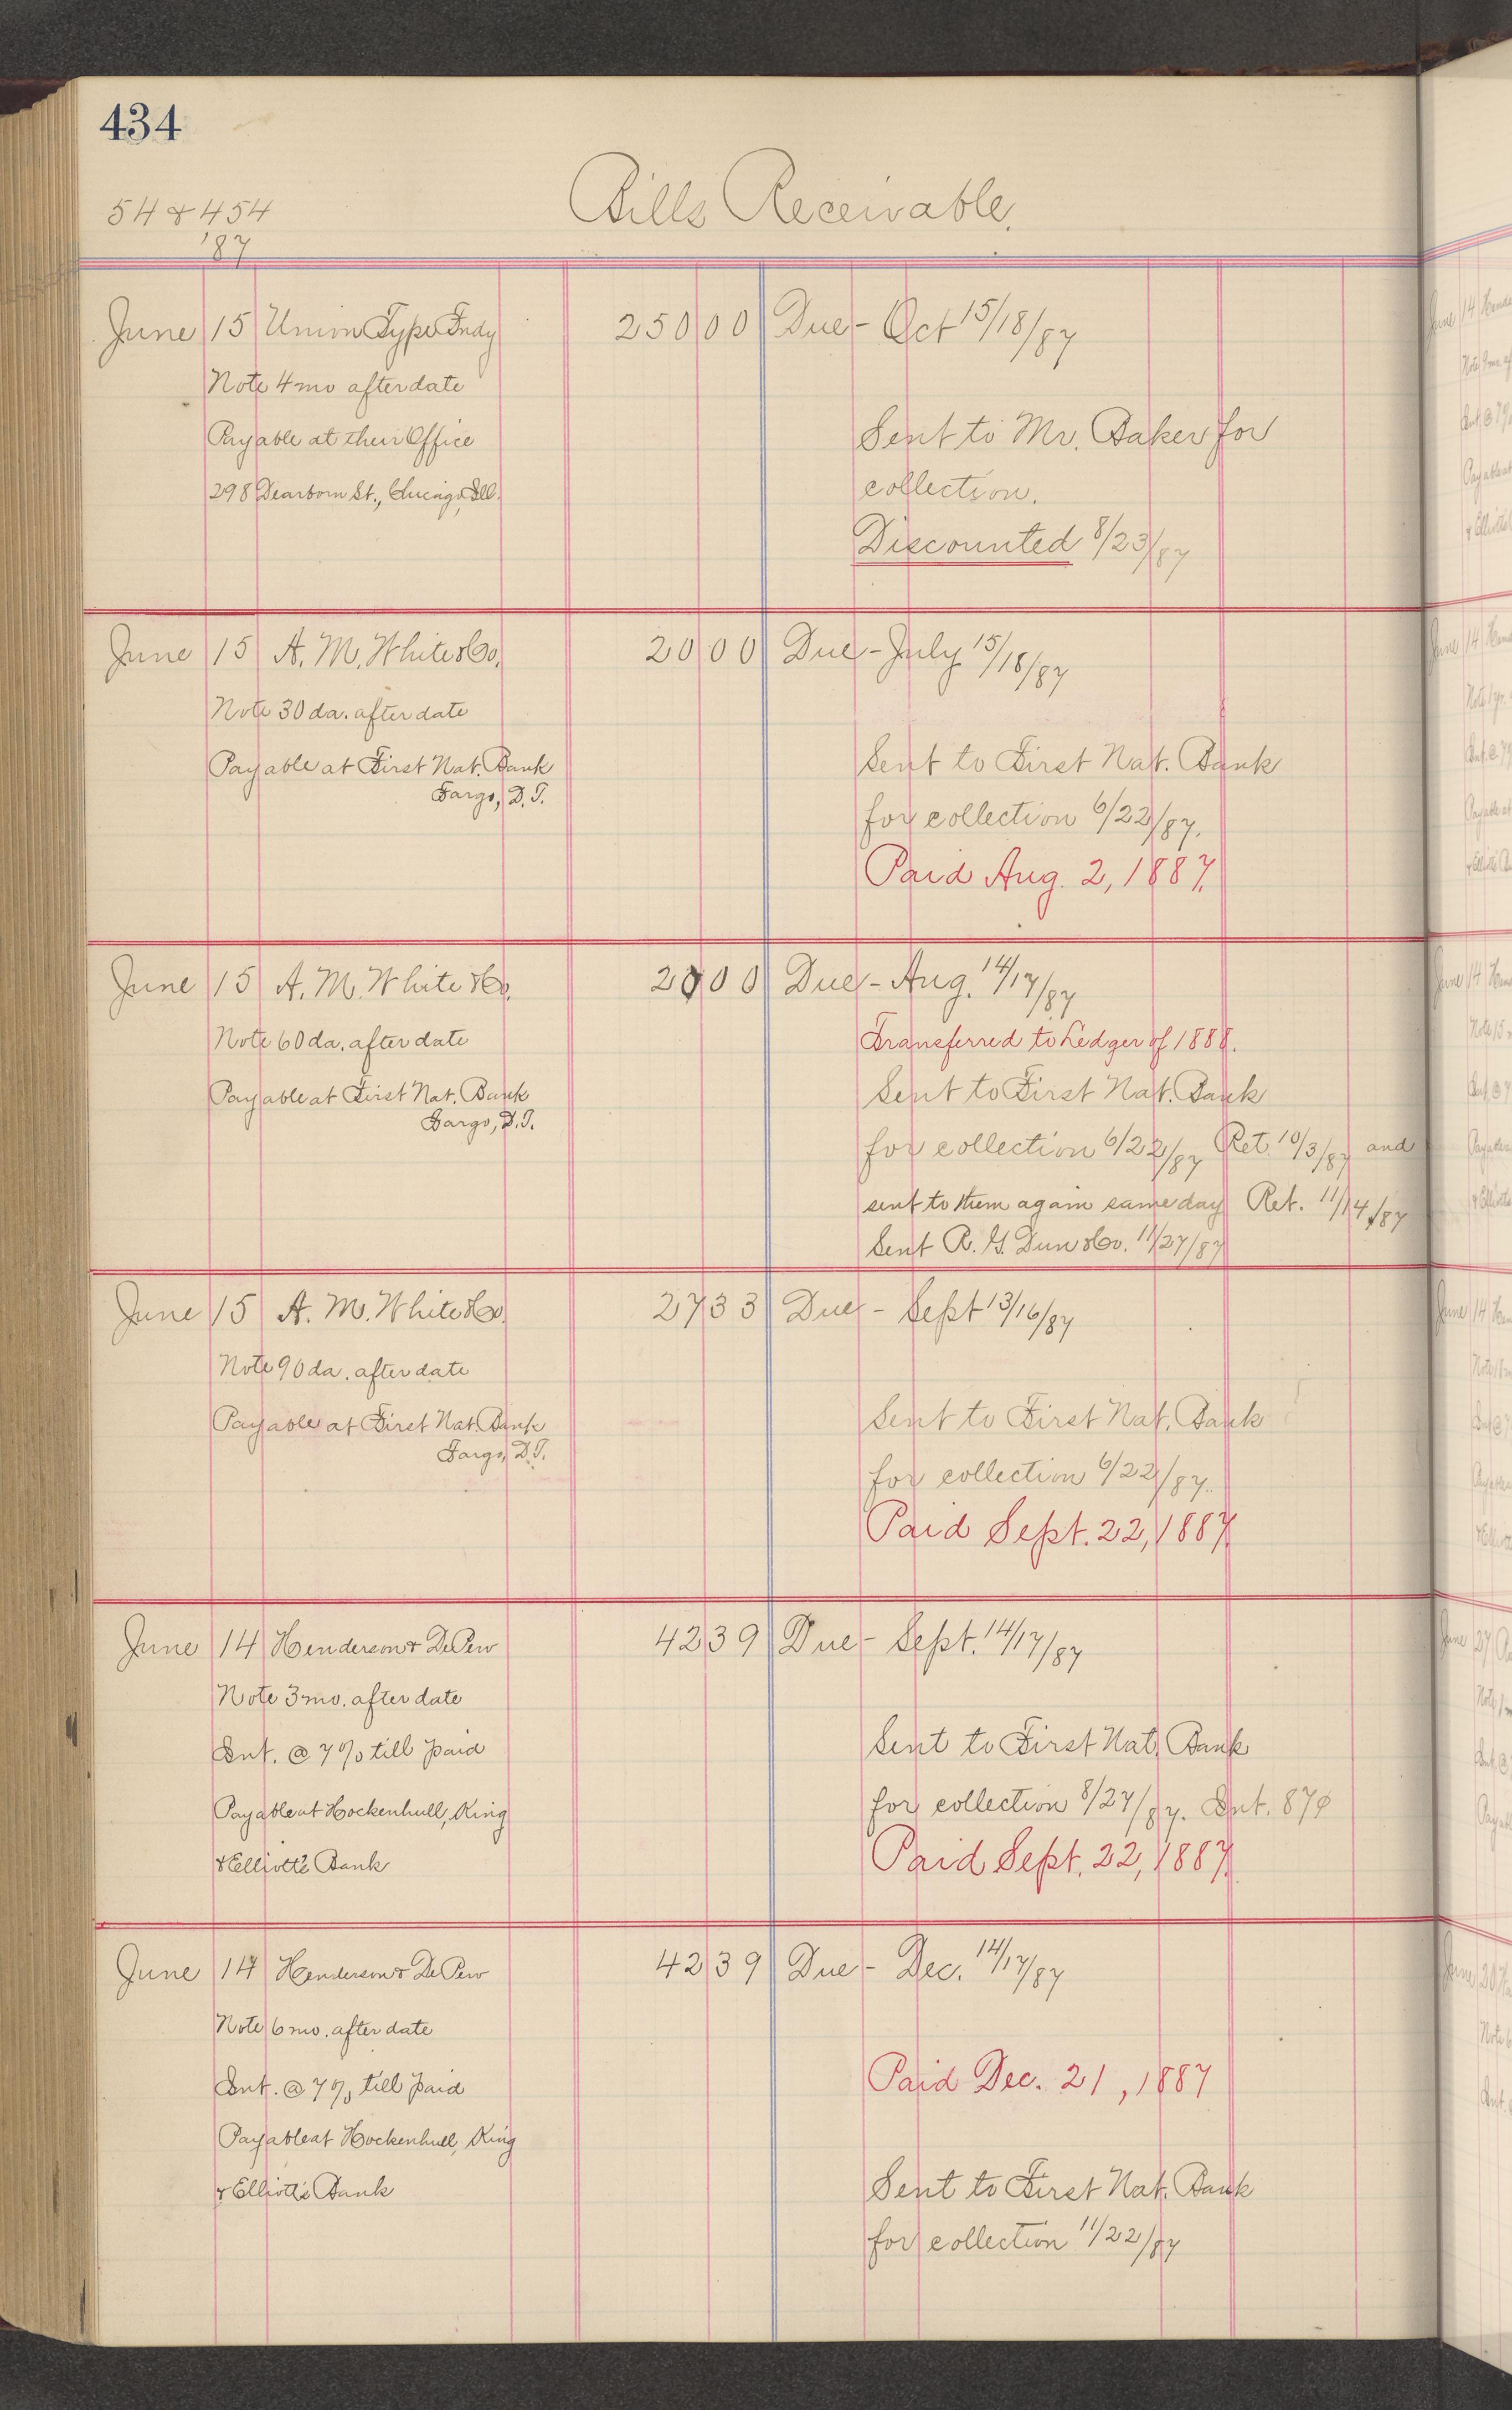 434
54 & 454
Bills Receivable.
'87
June 15 Union Type Fndy 250 00 Due - Oct 15/18/87
Note 4 mo after date
Payable at their Office
298 Dearborn St., Chicago, Ill.
Sent to Mr. Baker for
collection.
Discounted 8/23/87
June 15 A. M. White & Co. 20 00 Due - July 15/18/87
Note 30 da. after date
Payable at First Nat. Bank
Fargo, D. T.
Sent to First Nat. Bank
for collection 6/22/87.
Paid Aug. 2, 1887.
June 15 A. M. White & Co. 20 00 Due - Aug. 14/17/87
Note 60 da. after date
Payable at First Nat. Bank
Fargo, D. T.
Transferred to Ledger of 1888.
Sent to First Nat. Bank
for collection 6/22/87 Ret. 10/3/87 and
sent to them again same day Ret. 11/14/87
Sent R. G. Dun & Co. 11/27/87
June 15 A. M. White & Co. 27 33 Due - Sept 13/16/87
Note 90 da. after date
Payable at First Nat. Bank
Fargo, D. T.
Sent to First Nat. Bank
for collection 6/22/87.
Paid Sept. 22, 1887.
June 14 Henderson & DePew 42 39 Due - Sept. 14/17/87
Note 3 mo. after date
Int. @ 7% till paid
Payable at Hockenhull, King
& Elliott's Bank
Sent to First Nat. Bank
for collection 8/27/87. Int. 87¢
Paid Sept. 22, 1887.
June 14 Henderson & DePew 42 39 Due - Dec. 14/17/87
Note 6 mo. after date
Int. @ 7% till paid
Payable at Hockenhull, King
& Elliott's Bank
Paid Dec. 21, 1887
Sent to First Nat. Bank
for collection 11/22/87